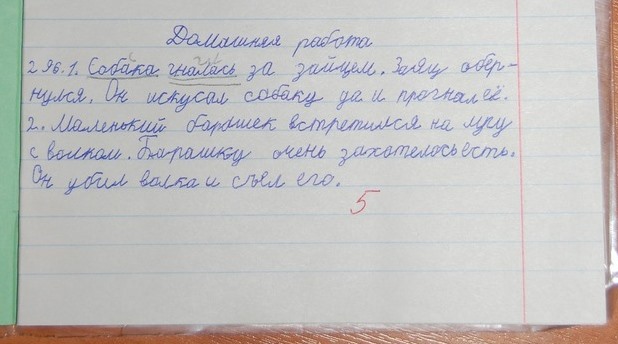 Домашняя работа
296.1. Собака гналась за зайцем. Заяц обер-
нулся. Он искусал собаку да и прогнал её.
2. Маленький барашек встретился на лугу
с волком. Барашку очень захотелось есть.
Он убил волка и съел его.
5